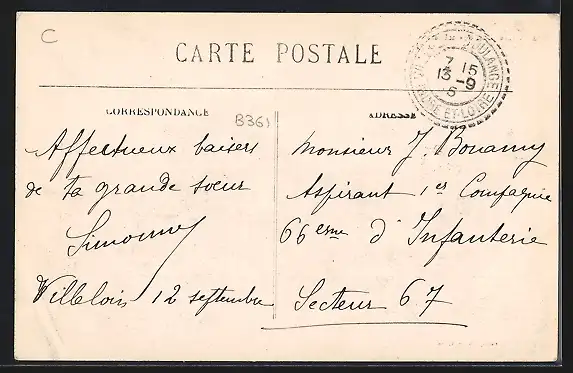 C
CARTE POSTALE
7 15
13-9
5
INDRE-ET-LOIRE
CORRESPONDANCE
ADRESSE
B361
Affectueux baisers
de ta grande soeur
Simonne
Villeloin 12 septembre
Monsieur J. Bonamy
Aspirant 1er Compagnie
66eme d'Infanterie
Secteur 67